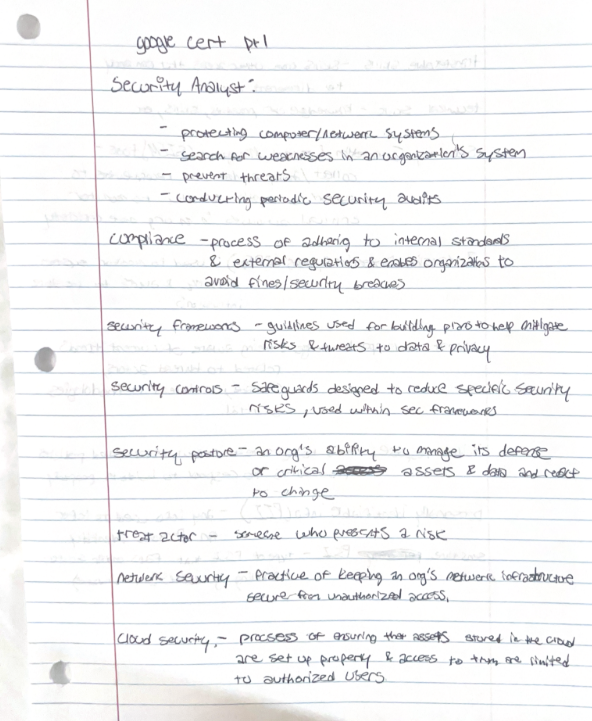 google cert pt1
Security Analyst:
- protecting computer/network systems
- search for weaknesses in an organization's system
- prevent threats
- conducting periodic security audits
compliance - process of adhering to internal standards
& external regulations & enables organizations to
avoid fines/security breaches
security frameworks - guidlines used for building plans to help mitigate
risks & threats to data & privacy
security controls - safeguards designed to reduce specific security
risks, used within sec frameworks
security posture - an org's ability to manage its defense
or critical assets & data and react
to change
treat actor - someone who presents a risk
network security - practice of keeping an org's network infrastructure
secure from unauthorized access.
cloud security, - process of ensuring that assets stored in the cloud
are set up properly & access to them are limited
to authorized users